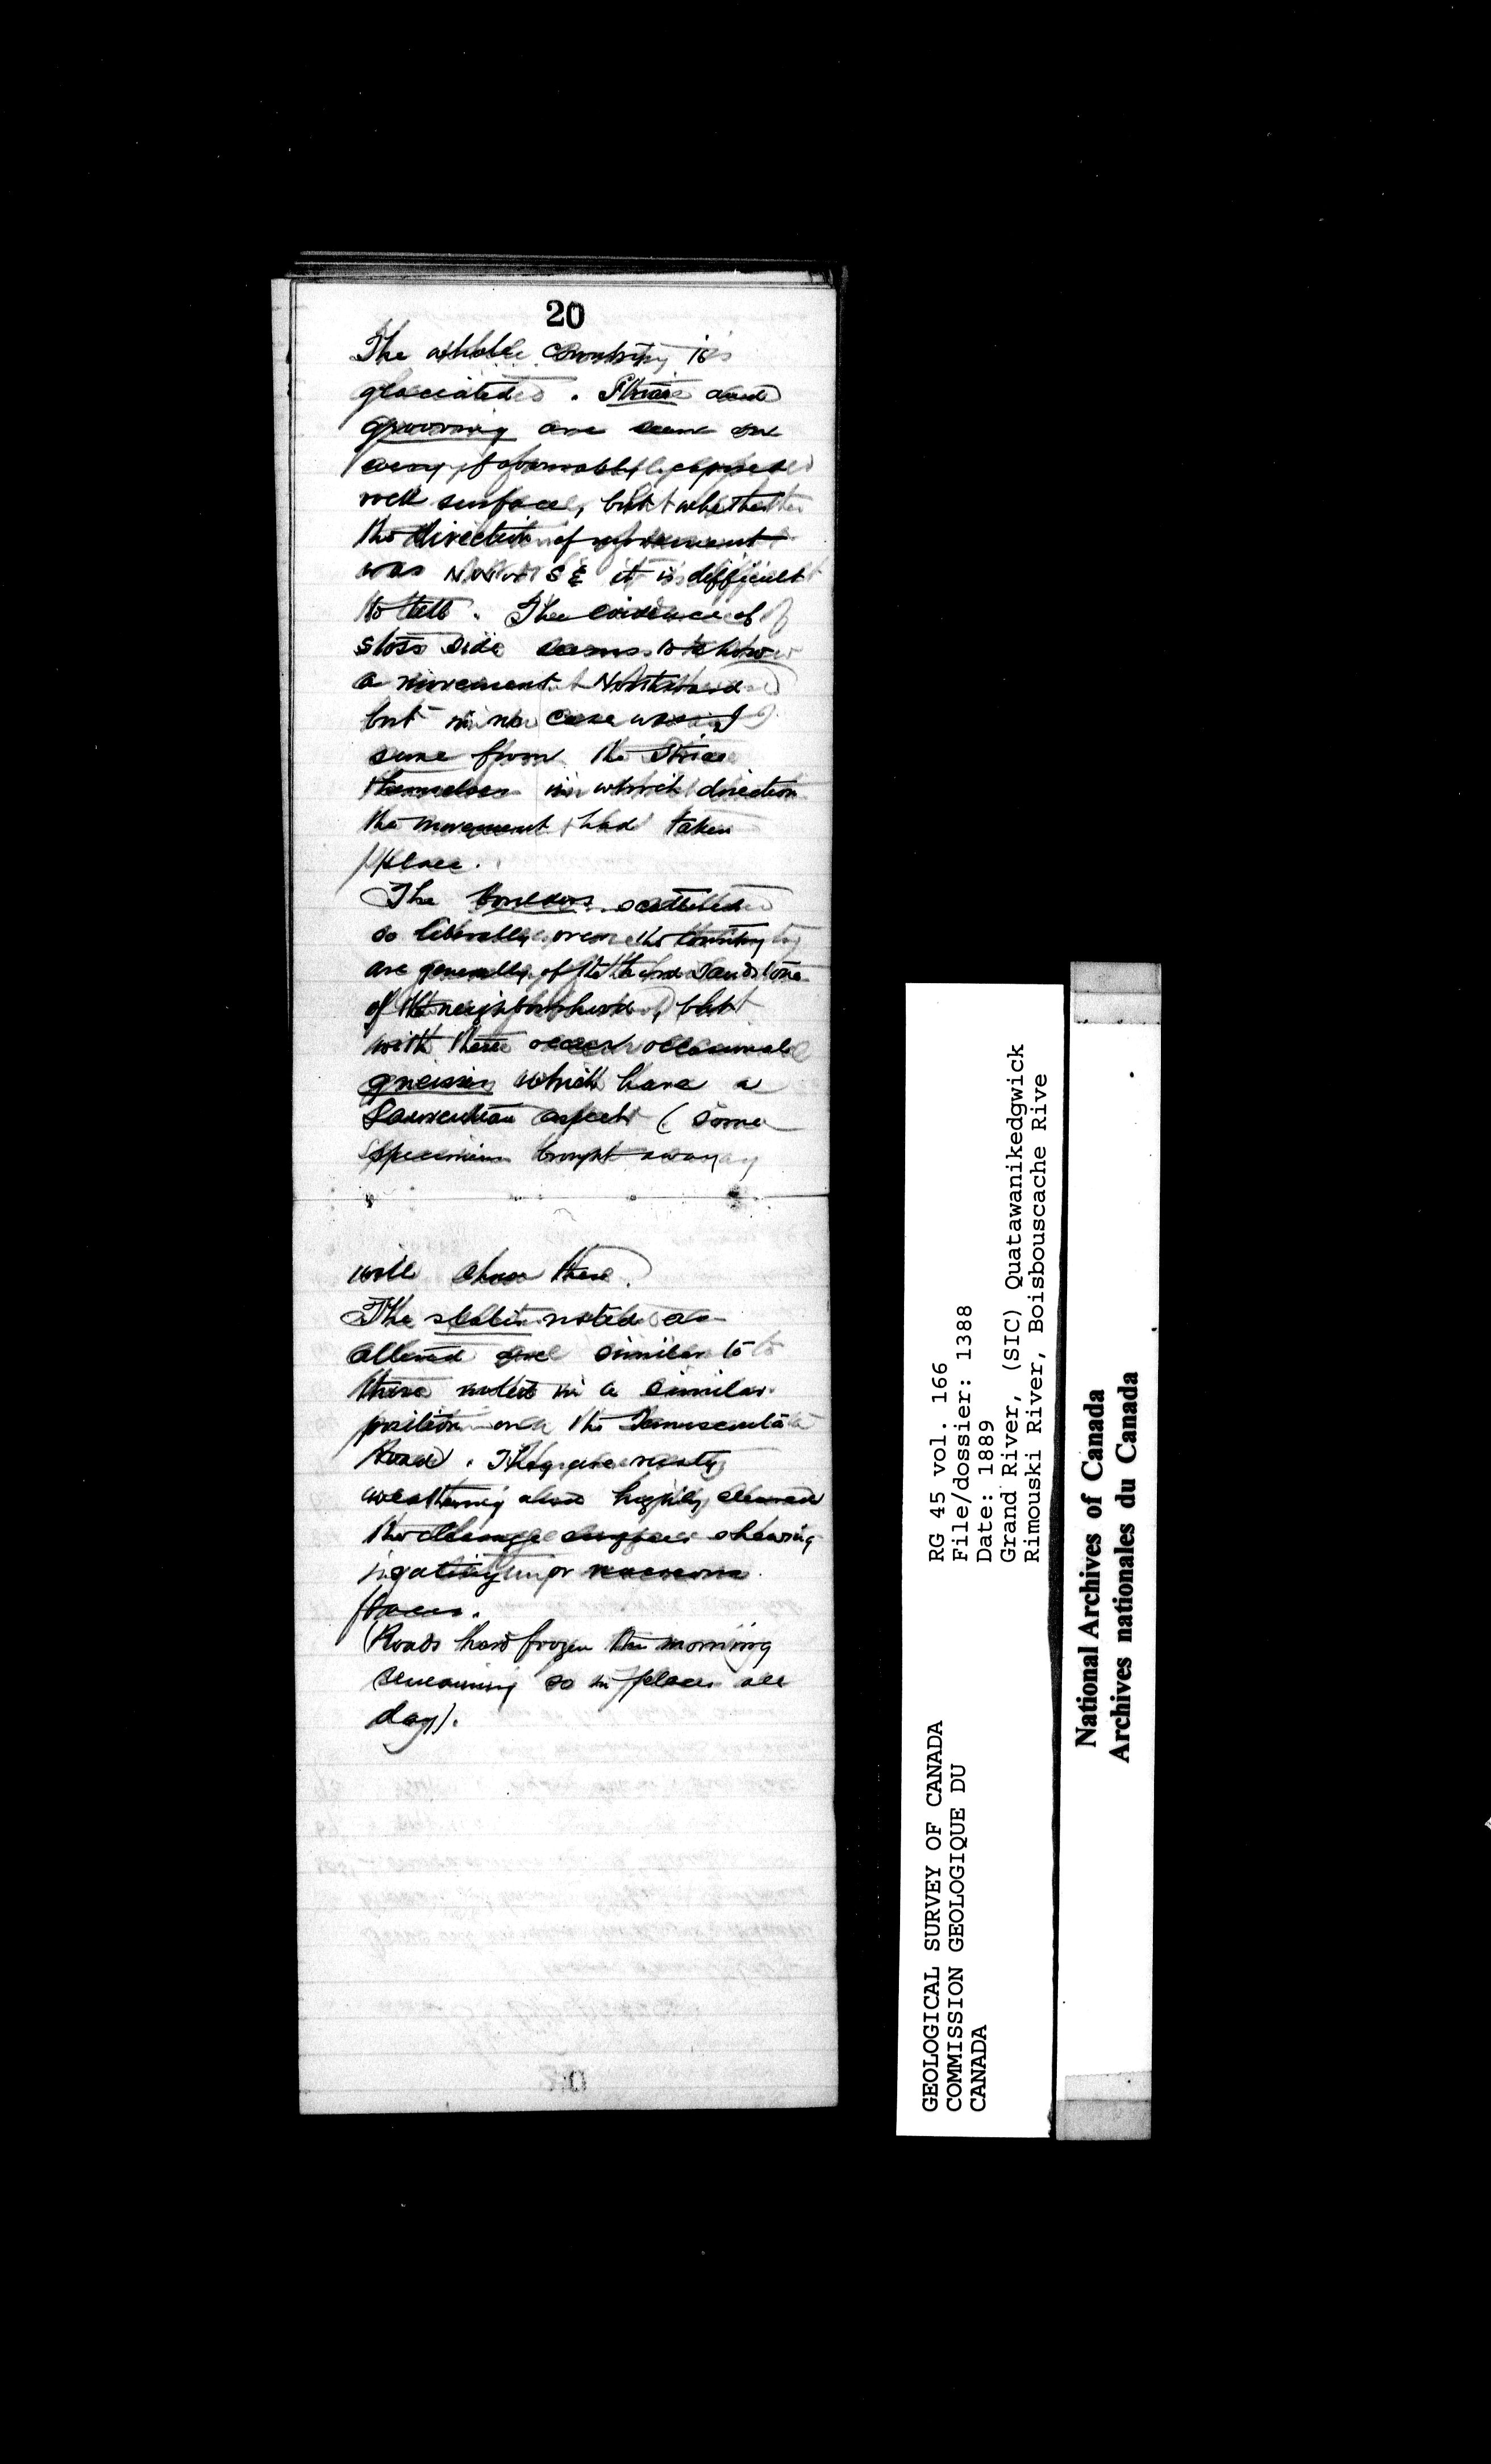 20
The whole country is
glaciated. Striae and
grooving are seen on
every favorably exposed
rock surface, but whether
the direction of movement
was NW or SE it is difficult
to tell. The evidence of
stoss side seems to show
a movement Northward
but in no case was I
sure from the striae
themselves in which direction
the movement had taken
place.
The boulders scattered
so liberally over the country
are generally of the sandstone
of the neighborhood, but
with these occur occasional
gneisses which have a
Laurentian aspect (some
specimens brought away
will show these.)
The slates noted as
altered are similar to
those noted in a similar
position on the Temiscouata
Road. They are rusty
weathering also highly cleaved
the cleavage surfaces showing
or
faces.
(Roads hard frozen this morning
remaining so in places all
day).
GEOLOGICAL SURVEY OF CANADA
COMMISSION GEOLOGIQUE DU
CANADA
RG 45 vol. 166
File/dossier: 1388
Date: 1889
Grand River, (SIC) Quatawanikedgwick
Rimouski River, Boisbouscache Rive
National Archives of Canada
Archives nationales du Canada